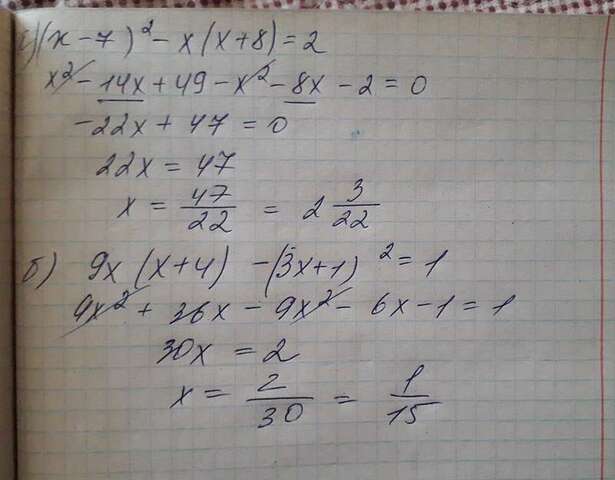 а) (x - 7)² - x(x+8) = 2
x² - 14x + 49 - x² - 8x - 2 = 0
-22x + 47 = 0
22x = 47
x = 47/22 = 2 3/22
б) 9x (x+4) - (3x+1)² = 1
9x² + 36x - 9x² - 6x - 1 = 1
30x = 2
x = 2/30 = 1/15